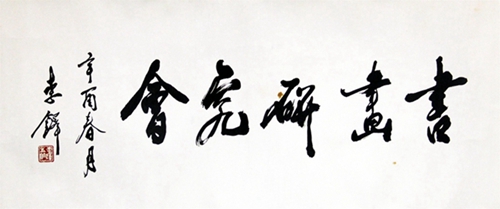 書畫研究會
辛酉春月
李鐸